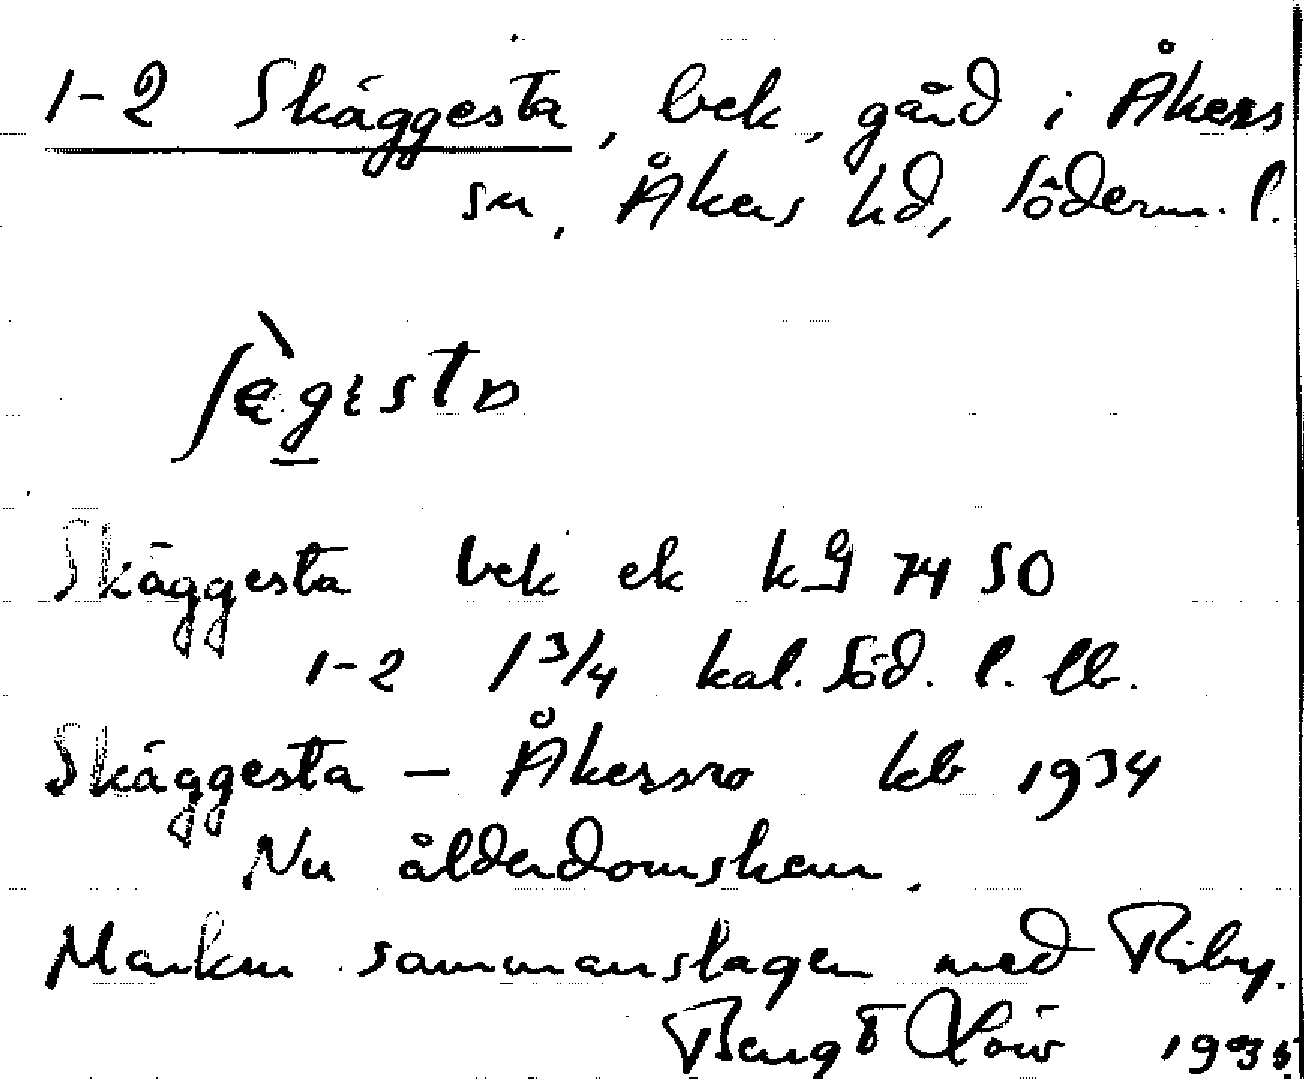 1-2 Skäggesta, bek, gård i Åkers
sn, Åkers hd, Söderm. l.
Skäggesta bek ek kg 74 SO
1-2 1 3/4 kal. Söd. l. lb.
Skäggesta – Åkersro kb 1934
Nu ålderdomshem.
Marken sammanslagen med Riby.
Bengt 1935